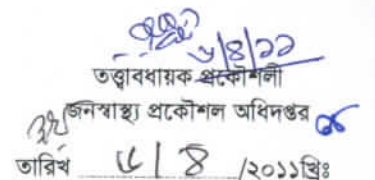 ৬/৪/১১
তত্ত্বাবধায়ক প্রকৌশলী
জনস্বাস্থ্য প্রকৌশল অধিদপ্তর
তারিখ ৬ / ৪ /২০১১খ্রিঃ